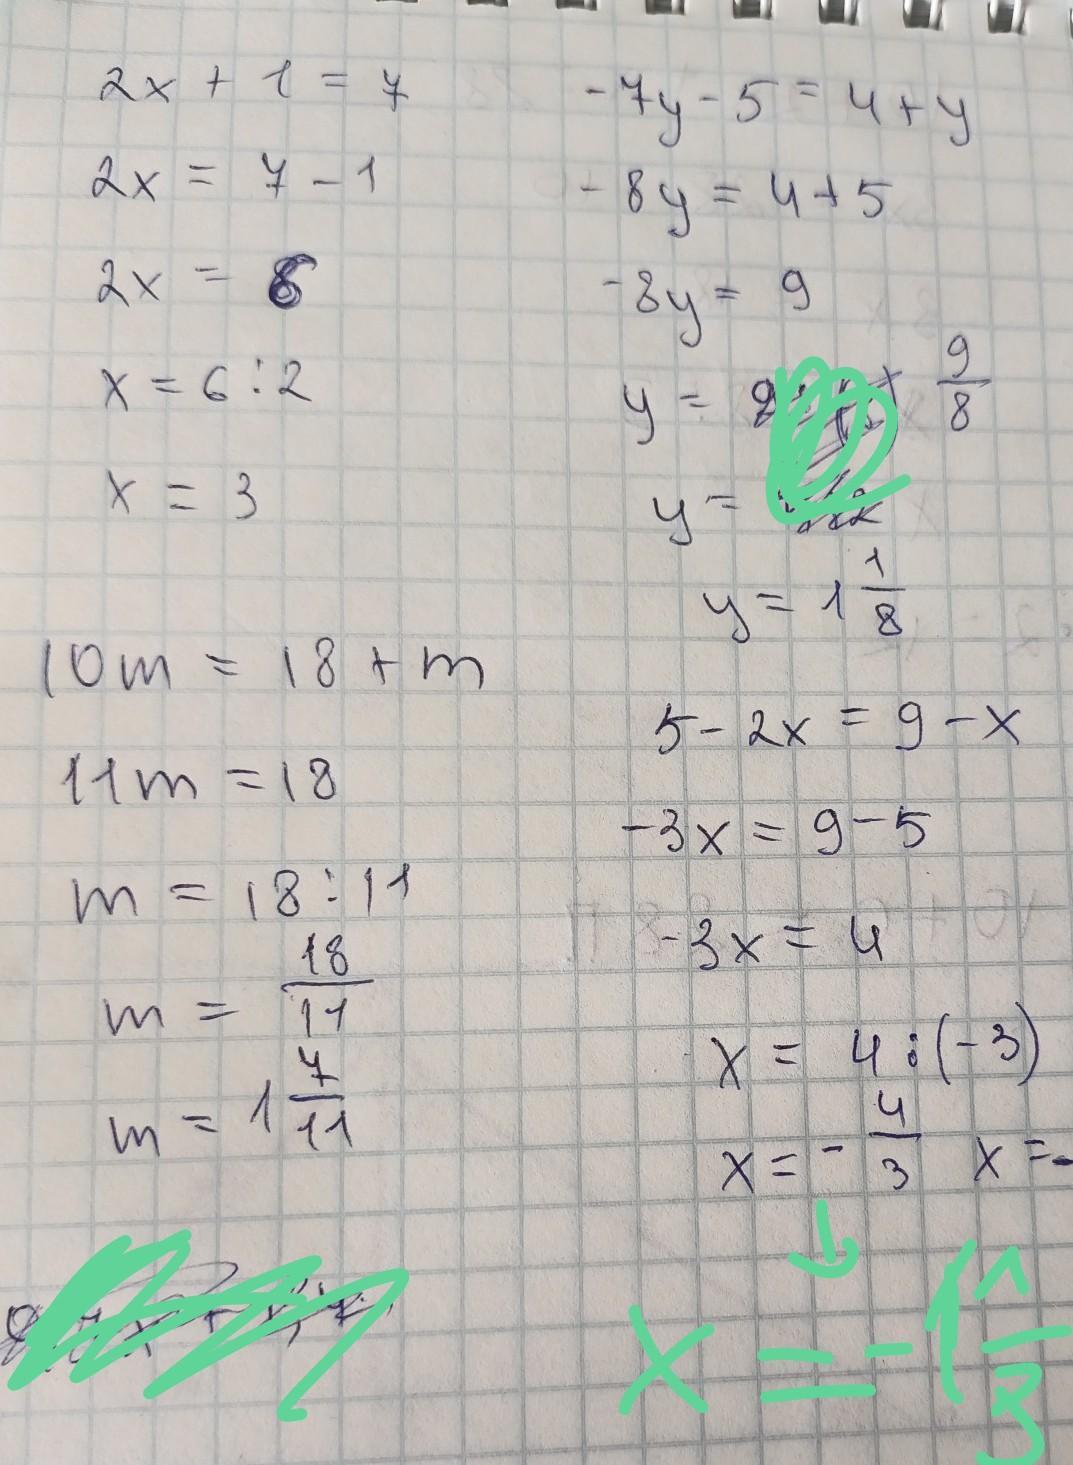 2x + 1 = 7
2x = 7 - 1
2x = 6
x = 6 : 2
x = 3
10m = 18 + m
11m = 18
m = 18 : 11
m = 18/11
m = 1 7/11
-7y - 5 = 4 + y
-8y = 4 + 5
-8y = 9
y = 9/8
y =
y = 1 1/8
5 - 2x = 9 - x
-3x = 9 - 5
-3x = 4
x = 4 : (-3)
x = - 4/3 x = -
↓
x = -1 1/3